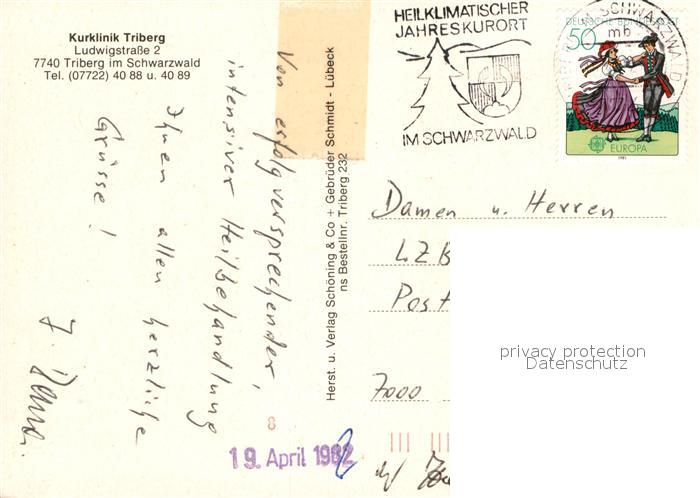 Kurklinik Triberg
Ludwigstraße 2
7740 Triberg im Schwarzwald
Tel. (07722) 40 88 u. 40 89
Von erfolgversprechender,
intensiver Heilbehandlung
Ihnen allen herzliche
Grüsse!
Herst. u. Verlag Schöning & Co + Gebrüder Schmidt - Lübeck
ns Bestellnr. Triberg 232
HEILKLIMATISCHER
JAHRESKURORT
IM SCHWARZWALD
IM SCHWARZWALD
mb
DEUTSCHE BUNDESPOST
50
EUROPA
1981
Damen u. Herren
LZB
Post
7000
privacy protection
Datenschutz
8
19. April 1982